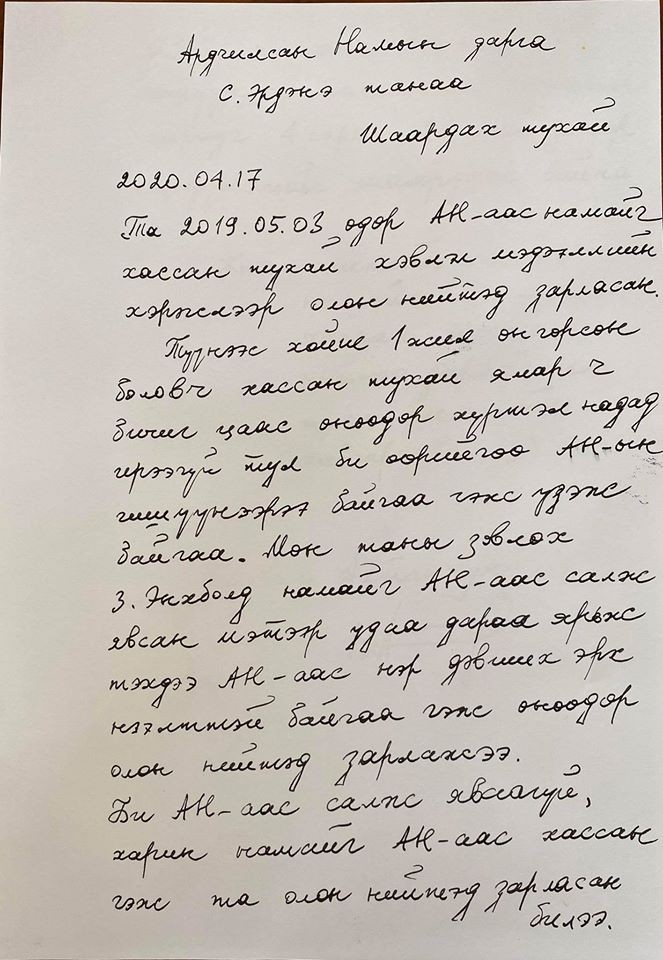 Ардчилсан Намын дарга
С. Эрдэнэ танаа
Шаардах тухай
2020.04.17
Та 2019.05.03 өдөр АН-аас намайг
хассан тухай хэвлэл мэдээллийн
хэрэгслээр олон нийтэд зарласан.
Түүнээс хойш 1 жил өнгөрсөн
боловч хассан тухай ямар ч
бичиг цаас өнөөдөр хүртэл надад
ирээгүй тул би өөрийгөө АН-ын
гишүүнээрээ байгаа гэж үзэж
байгаа. Мөн таны зөвлөх
З. Энхболд намайг АН-аас салж
явсан мэтээр удаа дараа ярьж
тэхдээ АН-аас нэр дэвших эрх
нээлттэй байгаа гэж өнөөдөр
олон нийтэд зарлажээ.
Би АН-аас салж яваагүй,
харин намайг АН-аас хассан
гэж та олон нийтэд зарласан
билээ.